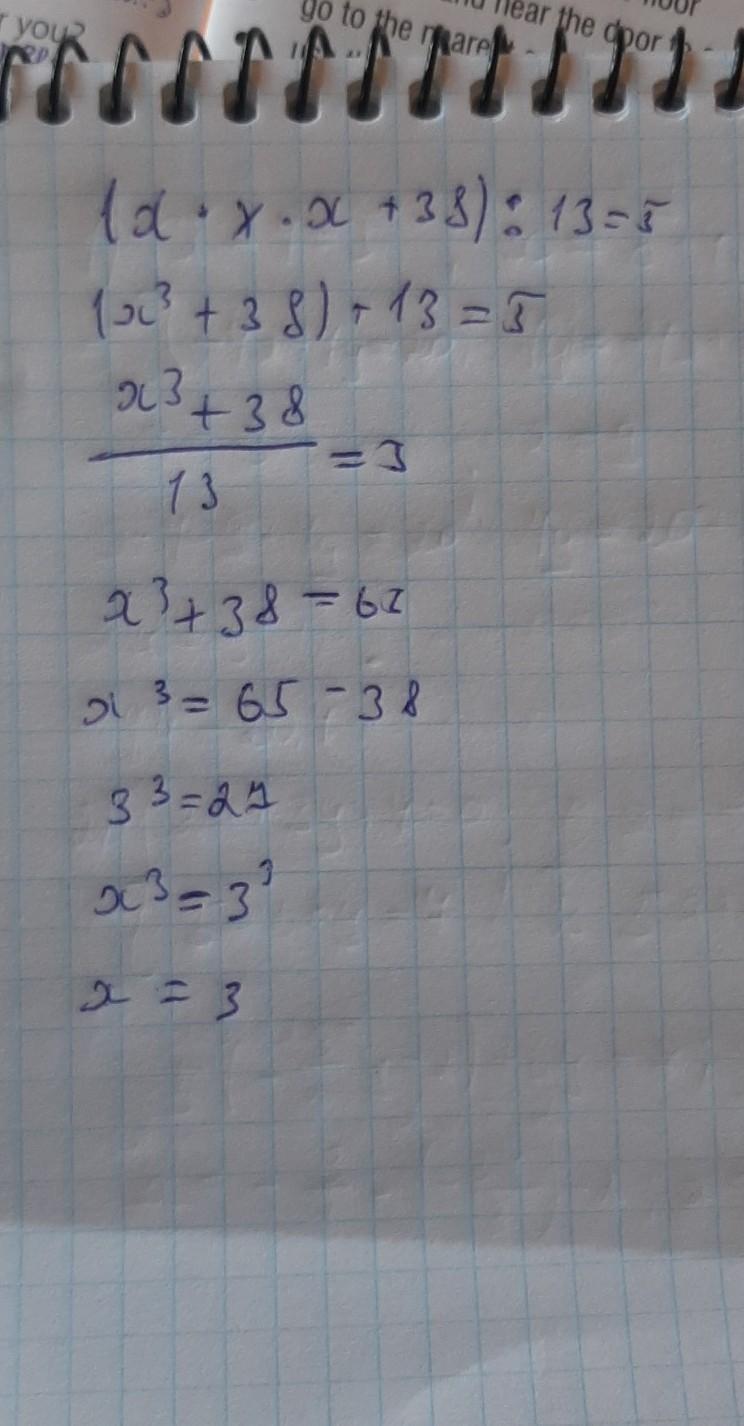 you?
go to the
near the door
(x · x · x + 38) : 13 = 5
(x³ + 38) ÷ 13 = 5
x³ + 38
13
= 5
x³ + 38 = 65
x³ = 65 - 38
3³ = 27
x³ = 3³
x = 3